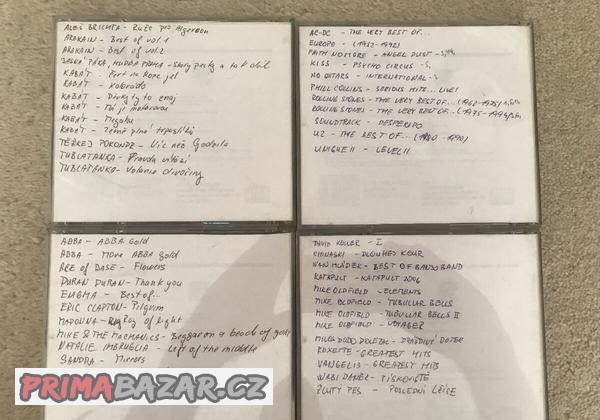 ALEŠ BRICHTA - Růže pro Algernon
ARAKAIN - Best of vol. 1
ARAKAIN - Best of vol. 2
KABÁT - Čert na koze jel
KABÁT - Colorado
KABÁT - Dívky ty to znaj
KABÁT - Má jí motorovou
KABÁT - MegaHu
KABÁT - Země plná trpaslíků
TĚŽKEJ POKONDR - Víc než Gottzila
TUBLATANKA - Pravda víťazí
TUBLATANKA - Volanie divočiny
AC-DC - THE VERY BEST OF...
EUROPE - (1982-1992)
FAITH NO MORE - ANGEL DUST
KISS - PSYCHO CIRCUS
NO GUITARS - INTERNATIONAL
PHILL COLLINS - SERIOUS HITS... LIVE!
ROLLING STONES - THE VERY BEST OF... (1962-1975)
ROLLING STONES - THE VERY BEST OF... (1975-1994)
SOUNDTRACK - DESPERADO
U2 - THE BEST OF... (1980-1990)
UNIQUE II - LEVEL II
ABBA - ABBA Gold
ABBA - More ABBA Gold
ACE of BASE - Flowers
DURAN DURAN - Thank you
ENIGMA - Best of...
ERIC CLAPTON - Pilgrim
MADONNA - Ray of Light
MIKE & THE MECHANICS - Beggar on a beach of gold
NATALIE IMBRUGLIA - Left of the middle
SANDRA - Mirrors
DAVID KOLLER - I
CHINASKI - DLOUHEJ KOUŘ
IVAN MLÁDEK - BEST OF BANJO BAND
KATAPULT - KATAPULT 2006
MIKE OLDFIELD - ELEMENTS
MIKE OLDFIELD - TUBULAR BELLS
MIKE OLDFIELD - TUBULAR BELLS II
MIKE OLDFIELD - VOYAGER
ROXETTE - GREATEST HITS
VANGELIS - GREATEST HITS
WABI DANĚK - PÍSKOVIŠTĚ
ŽLUTÝ PES - POSLEDNÍ LÉČE
PRIMABAZAR.CZ